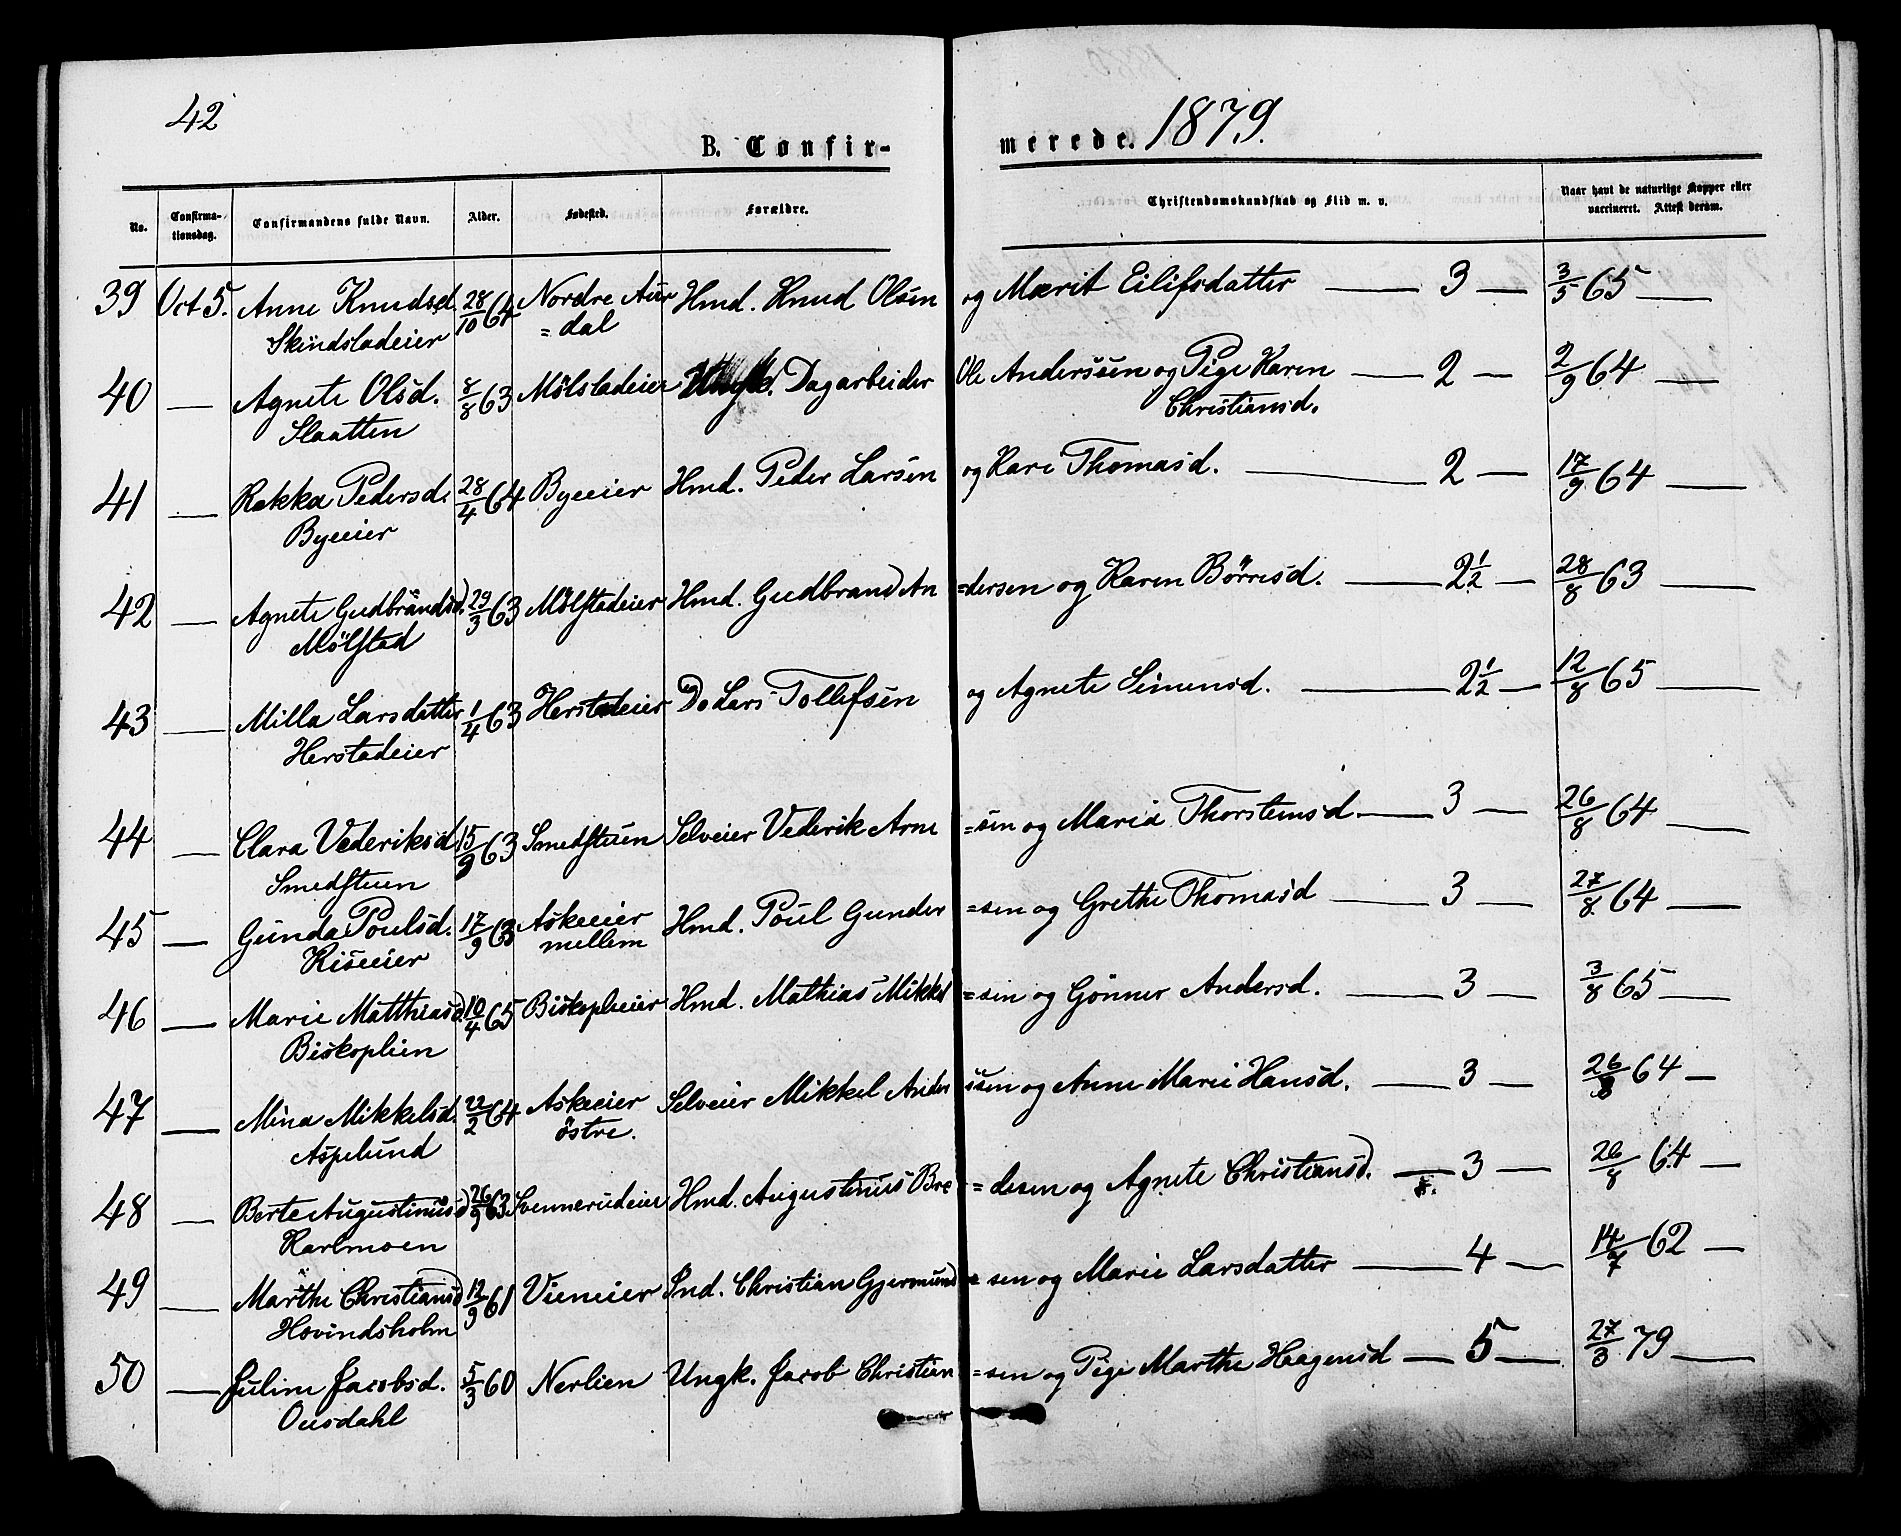 42
B. Confir-
merede. 1879.
No. Confirma-tionsdag. Confirmandens fulde Navn. Alder. Fødested. Forældre. Christendomskundskab og Flid m. v. Naar havt de naturlige Kopper eller vaccineret. Attest derom.
39 Oct 5. Anne Knudsd. 28/10 64 Nordre Aur Hmd. Knud Olsen og Marit Eilifsdatter — 3 — 3/5 65 —
Skindsladeier =dal
40 — Agnete Olsd. 8/8 63 Mölstadeier Ungk. Dagarbeider Ole Anderssen og Pige Karen — 2 — 2/9 64 —
Slaatten Christiansd.
41 — Rakka Pedersd. 28/4 64 Byeeier Hmd. Peder Larsen og Kari Thomasd. — 2 — 17/9 64 —
Byeeier
42 — Agnete Gudbrandsd. 29/3 63 Mölstadeier Hmd. Gudbrand An =dersen og Karen Börresd. — 2 1/2 — 28/8 63 —
Mølstad
43 — Milla Larsdatter 1/4 63 Herstadeier Do Lars Tollefsen og Agnete Simensd. — 2 1/2 — 12/8 65 —
Herstadeier
44 — Clara Vederiksd. 15/9 63 Smedstuen Selveier Vederik Arne =sen og Maria Thorstensd. — 3 — 26/8 64 —
Smedstuen
45 — Gunda Poulsd. 17/9 63 Askeeier Hmd. Poul Gunder =sen og Grethe Thomasd — 3 — 27/8 64 —
Riseeier mellem
46 — Marie Matthiasd. 10/4 65 Biskoplieeier Hmd. Mathias Mikkel =sen og Gönner Andersd. — 3 — 3/8 65 —
Biskoplien
47 — Mina Mikkelsd. 22/2 64 Askeeier Selveier Mikkel Ander ssen og Anne Marie Hansd. — 3 — 26/8 64 —
Aspelund östre.
48 — Berte Augustinusd. 26/9 63 Svennerudeier Hmd. Augustinus Bre =desen og Agnete Christiansd. — 3 — 26/8 64 —
Karlmoen
49 — Marthe Christiansd. 12/9 61 Vieneier Ind. Christian Gjermund =sen og Marie Larsdatter — 4 — 14/7 62 —
Hovindsholm
50 — Juline Jacobsd. 5/3 60 Nerlien Ungk. Jacob Christian =sen og Pige Marthe Haagensd — 5 — 27/3 79 —
Ousdahl